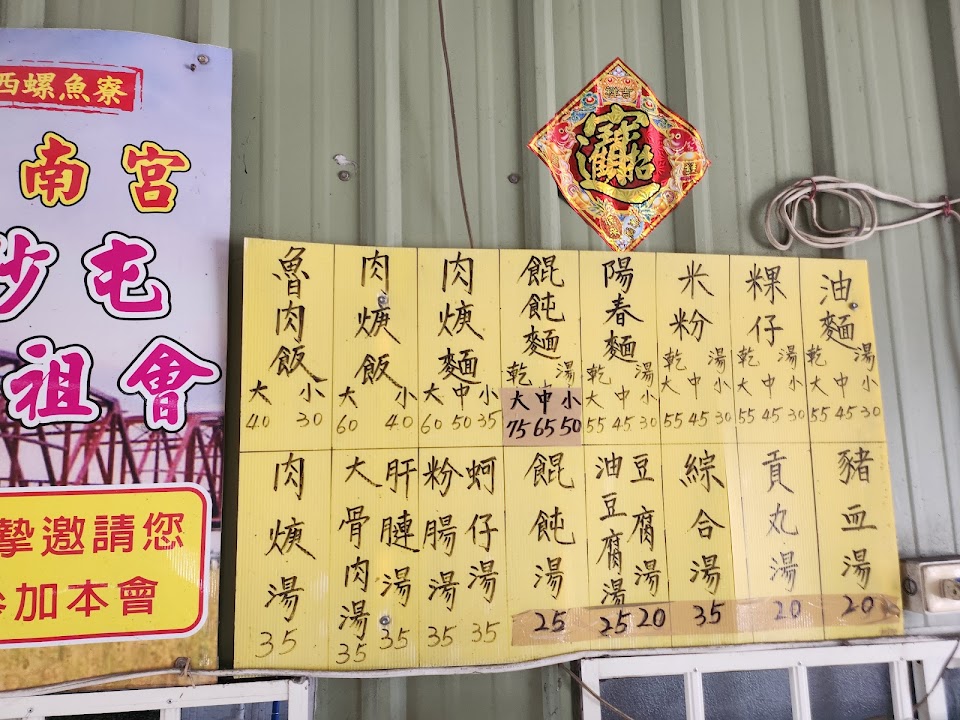 西螺魚寮
南宮
沙屯
祖會
摯邀請您
參加本會
招財進寶
油麵
乾 湯
大 中 小
55 45 30
粿仔
乾 湯
大 中 小
55 45 30
米粉
乾 湯
大 中 小
55 45 30
陽春麵
乾 湯
大 中 小
55 45 30
餛飩麵
乾 湯
大 中 小
75 65 50
肉焿麵
大 中 小
60 50 35
肉焿飯
大 小
60 40
魯肉飯
大 小
40 30
豬血湯
20
貢丸湯
20
綜合湯
35
豆腐湯
20
油豆腐湯
25
餛飩湯
25
蚵仔湯
35
粉腸湯
35
肝膤湯
35
大骨肉湯
35
肉焿湯
35